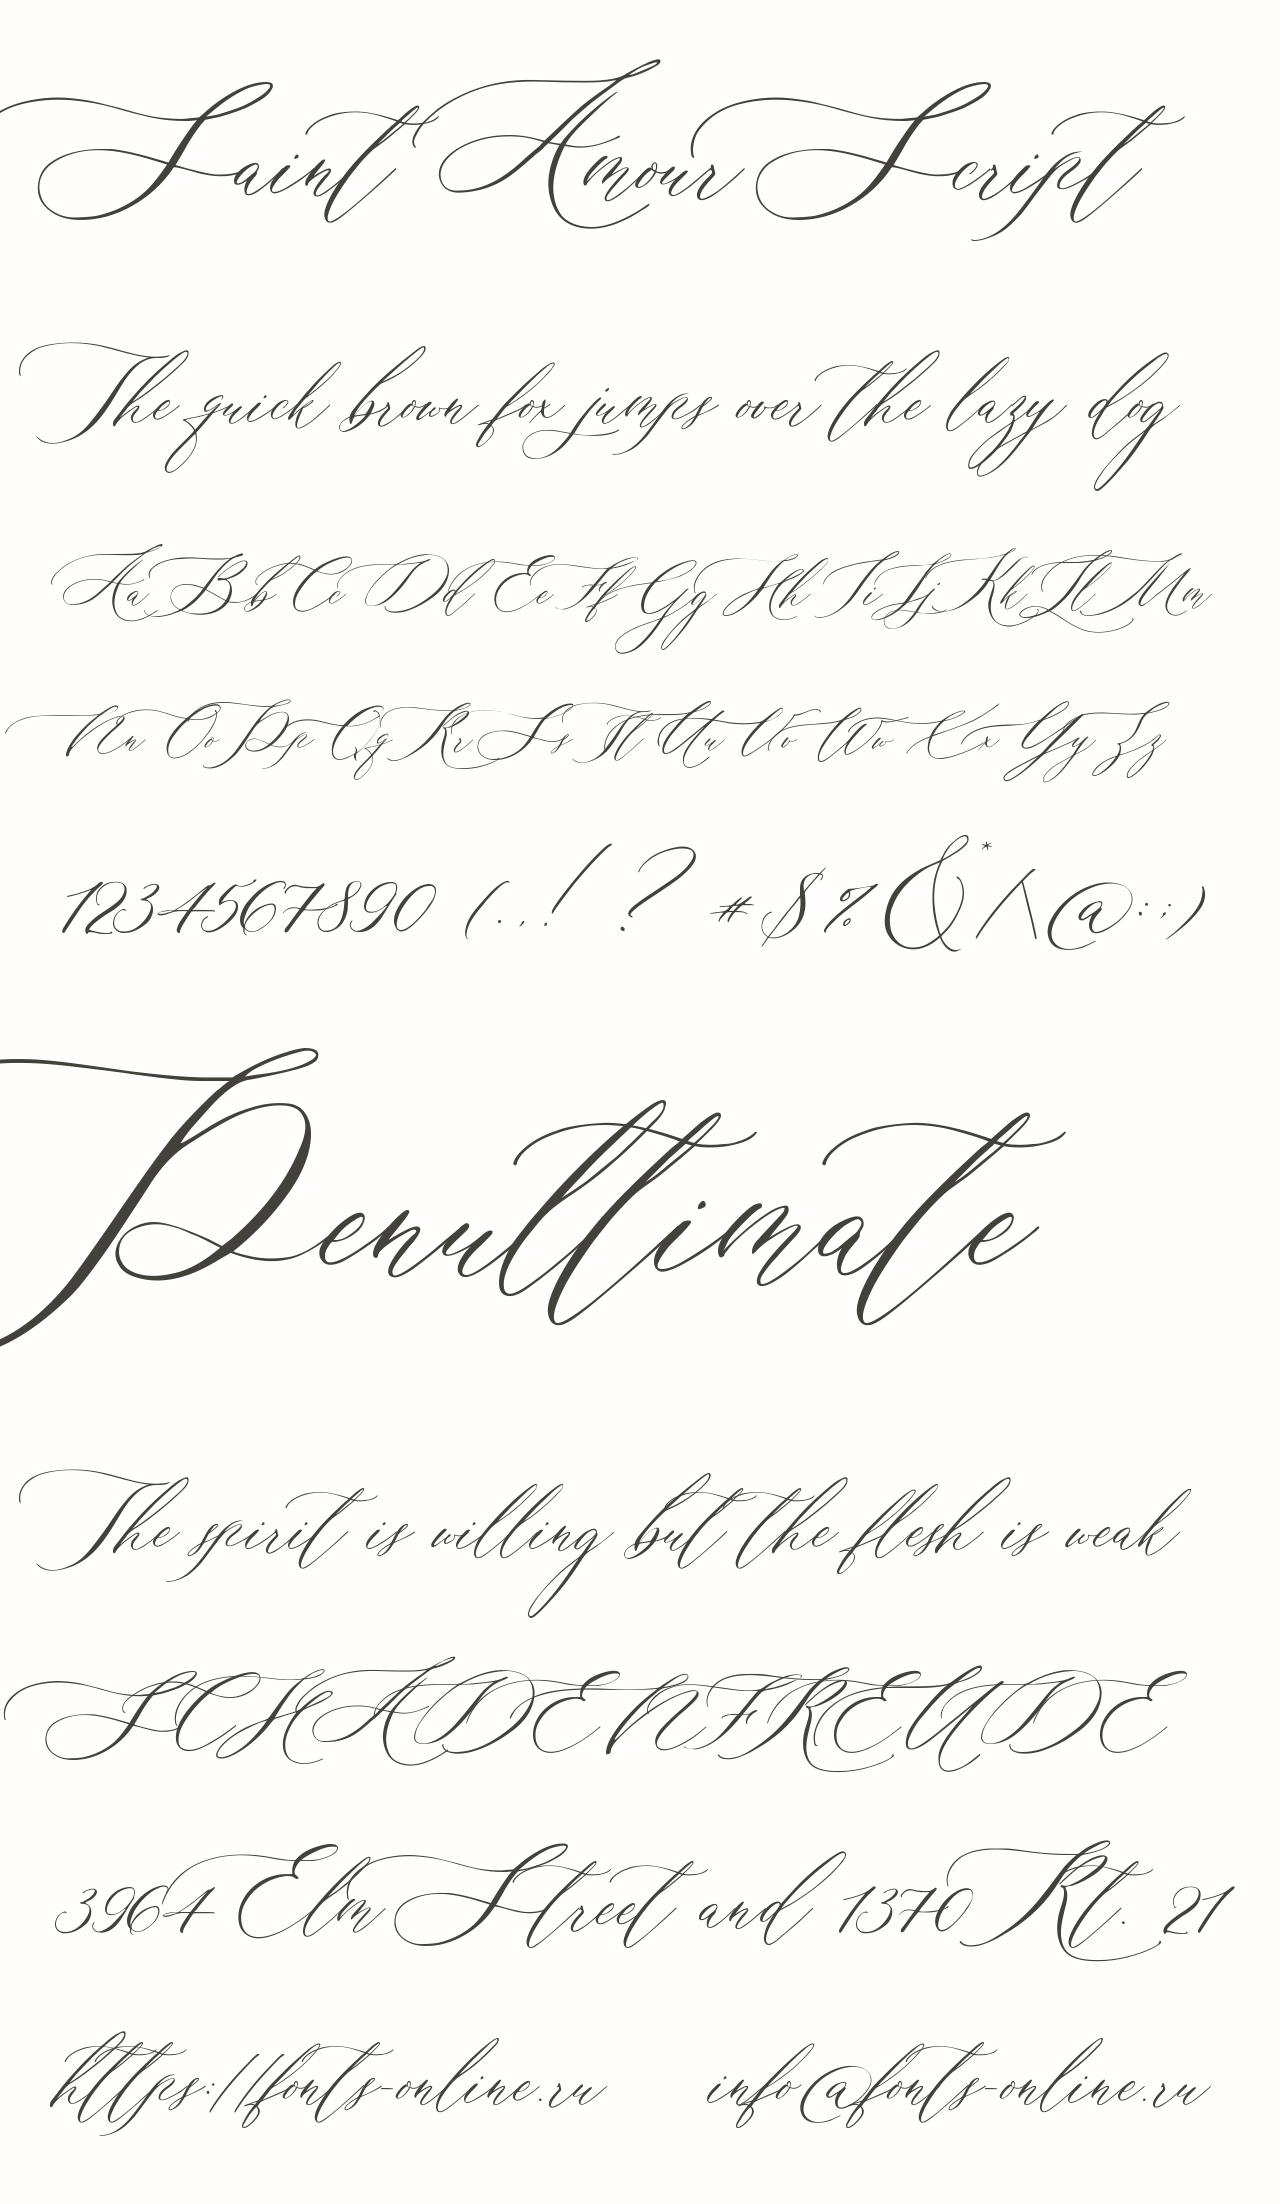 Saint Amour Script
The quick brown fox jumps over the lazy dog
Aa Bb Cc Dd Ee Ff Gg Hh Ii Jj Kk Ll Mm
Nn Oo Pp Qq Rr Ss Tt Uu Vv Ww Xx Yy Zz
1234567890 (.,! ? #$%&*/\@:;)
Penultimate
The spirit is willing but the flesh is weak
SCHADENFREUDE
3964 Elm Street and 1370 Rt. 21
https://fonts-online.ru info@fonts-online.ru